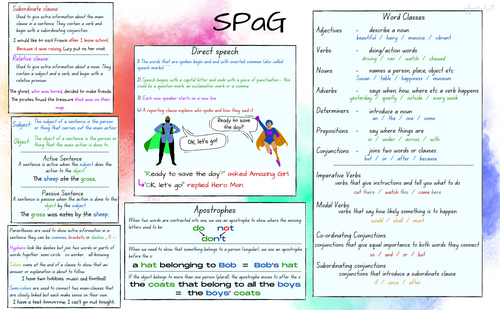 SPaG
Subordinate clause
Used to give extra information about the main
clause in a sentence. They contain a verb and
begin with a subordinating conjunction.
I would like to visit France after I leave school.
Because it was raining, Lucy put on her coat.
Relative clause
Used to give extra information about a noun. They
contain a subject and a verb, and begin with a
relative pronoun.
The ghost, who was bored, decided to make friends.
The pirates found the treasure that was on their
map.
Subject
The subject of a sentence is the person
or thing that carries out the main action
Object
The object of a sentence is the person or
thing that the main action is done to
Active Sentence
A sentence is active when the subject does the
action to the object
The sheep ate the grass.
Passive Sentence
A sentence is passive when the action is done to
the object by the subject
The grass was eaten by the sheep.
Parentheses are used to show extra information in a
sentence they can be commas, brackets or dashes , () -
Hyphens look like dashes but join two words or parts of
words together semi-circle co-worker all-knowing
Colons come at the end of a clause to show that an
answer or explanation is about to follow.
I have two hobbies: music and football
Semi-colons are used to connect two main-clauses that
are closely linked but each make sense on their own.
I have a test tomorrow; I can't go out tonight.
Direct speech
1) The words that are spoken begin and end with inverted commas (also called
speech marks) " "
2) Speech begins with a capital letter and ends with a piece of punctuation - this
could be a question mark, an exclamation mark or a comma
3) Each new speaker starts on a new line
4) A reporting clause explains who spoke and how they said it
Ready to save
the day?
OK, let's go!
"Ready to save the day?" asked Amazing Girl.
"OK, let's go!" replied Hero Man.
Apostrophes
When two words are contracted into one, we use an apostrophe to show where the missing
letters used to be:
do not
don't
When we need to show that something belongs to a person (singular), we use an apostrophe
before the s:
a hat belonging to Bob = Bob's hat
If the object belongs to more than one person (plural), the apostrophe moves to after the s:
the coats that belong to all the boys
= the boys' coats
Word Classes
Adjectives - describe a noun
beautiful / hairy / massive / vibrant
Verbs - doing/action words
driving / ran / watch / chewed
Nouns - names a person, place, object etc
Susan / table / happiness / museum
Adverbs - says when, how, where etc a verb happens
yesterday / quietly / outside / every week
Determiners - introduce a noun
an / the / one / some
Prepositions - say where things are
in / under / across / with
Conjunctions - joins two words or clauses
but / or / after / because
Imperative Verbs
verbs that give instructions and tell you what to do
eat there / watch this / come here
Modal Verbs
verbs that say how likely something is to happen
would / shall / must
Co-ordinating Conjunctions
conjunctions that give equal importance to both words they connect
so / and / or / but
Subordinating conjunctions
conjunctions that introduce a subordinate clause
if / since / after